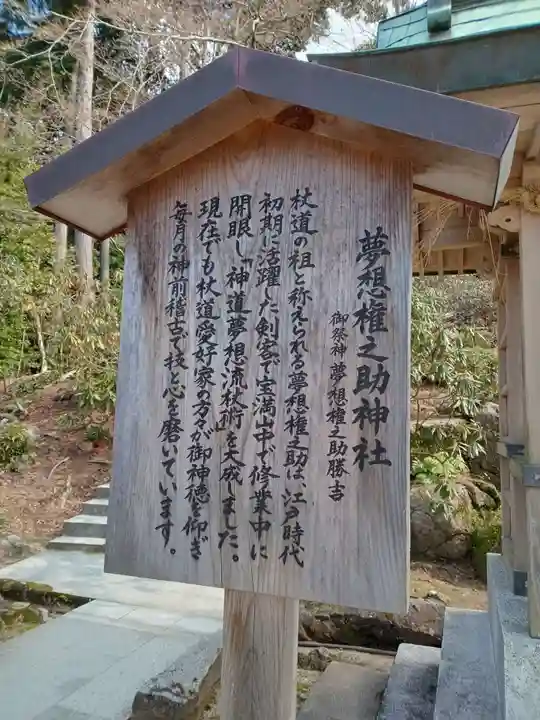 夢想権之助神社
御祭神 夢想権之助勝吉
杖道の祖と称えられる夢想権之助は、江戸時代
初期に活躍した剣客で宝満山中で修業中に
開眼し「神道夢想流杖術」を大成しました。
現在でも杖道愛好家の方々が御神徳を仰ぎ
毎月の神前稽古で技と心を磨いています。